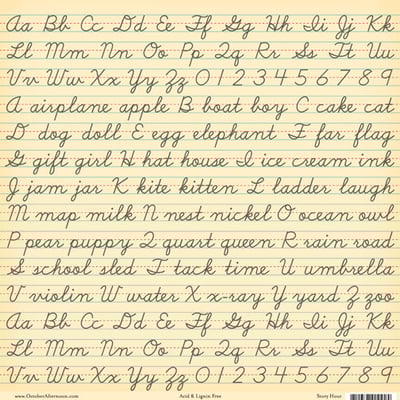 Aa Bb Cc Dd Ee Ff Gg Hh Ii Jj Kk
Ll Mm Nn Oo Pp Qq Rr Ss Tt Uu
Vv Ww Xx Yy Zz 0 1 2 3 4 5 6 7 8 9
A airplane apple B boat boy C cake cat
D dog doll E egg elephant F far flag
G gift girl H hat house I ice cream ink
J jam jar K kite kitten L ladder laugh
M map milk N nest nickel O ocean owl
P pear puppy Q quart queen R rain road
S school sled T tack time U umbrella
V violin W water X x-ray Y yard Z zoo
Aa Bb Cc Dd Ee Ff Gg Hh Ii Jj Kk
Ll Mm Nn Oo Pp Qq Rr Ss Tt Uu
Vv Ww Xx Yy Zz 0 1 2 3 4 5 6 7 8 9
www.OctoberAfternoon.com Acid & Lignin Free Story Hour